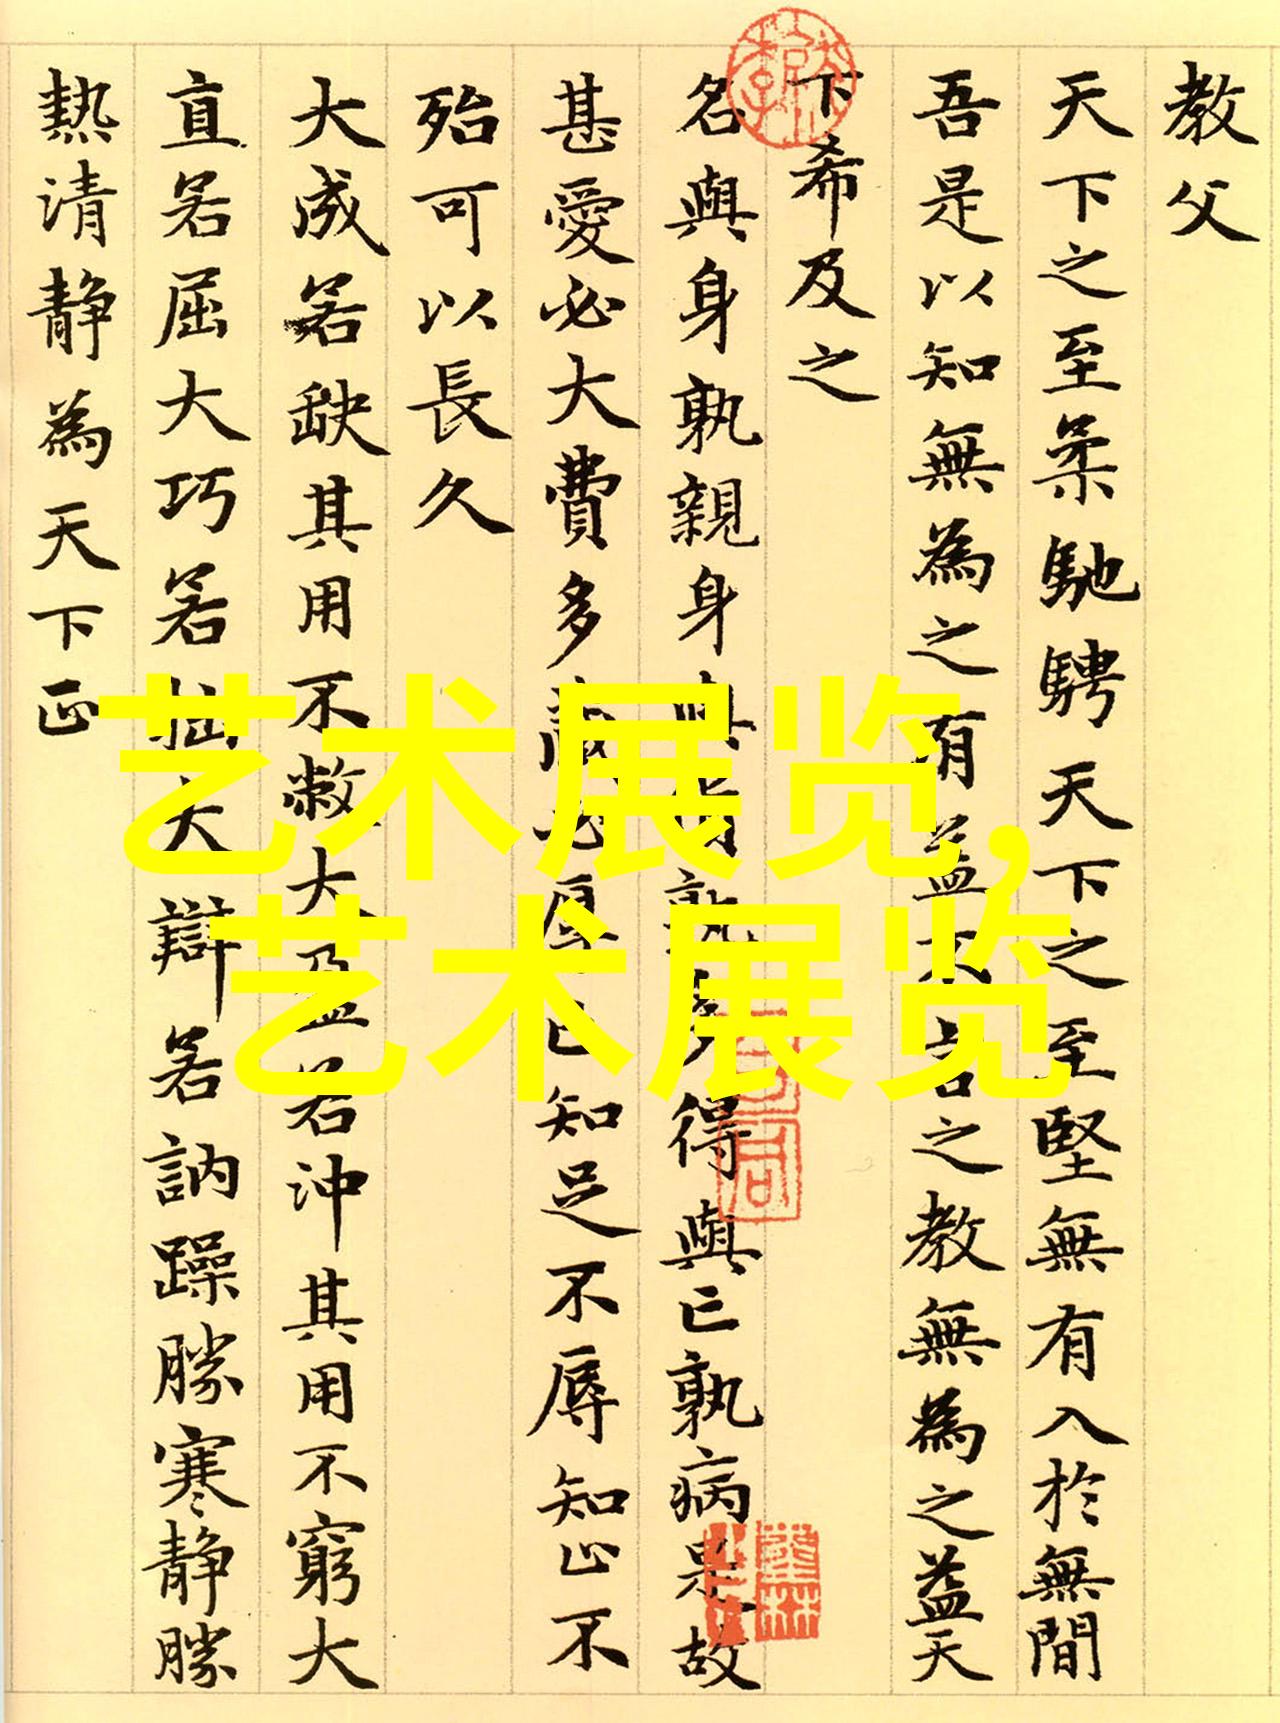 教父
天下之至柔馳騁天下之至堅無有入於無間
吾是以知無為之有益不言之教無為之益天
下希及之
名與身孰親身與貨孰多得與亡孰病是故
甚愛必大費多藏必厚亡知足不辱知止不
殆可以長久
大成若缺其用不敝大盈若沖其用不窮大
直若屈大巧若拙大辯若訥躁勝寒静勝
熱清静為天下正
艺术展览,
艺术展览